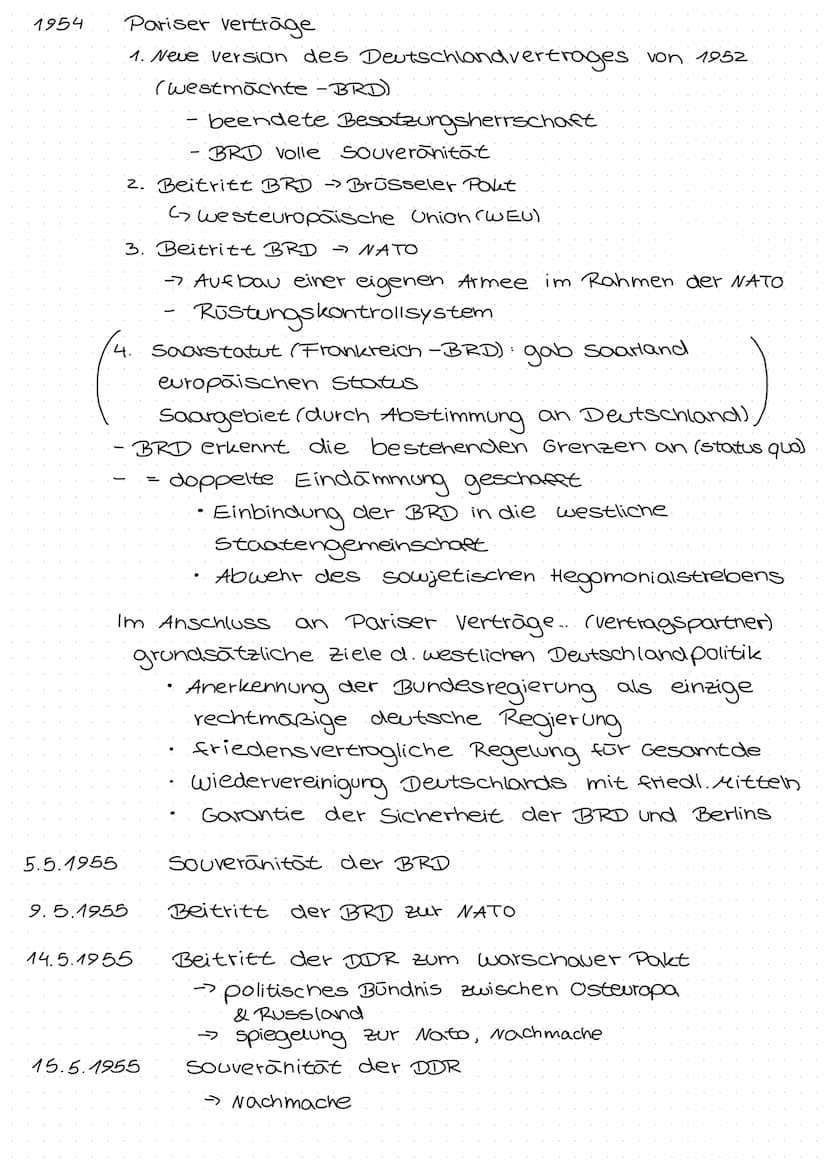 1954 Pariser Verträge
1. Neue Version des Deutschlandvertrages von 1952
(Westmächte - BRD)
- beendete Besatzungsherrschaft
- BRD volle Souveränität
2. Beitritt BRD → Brüsseler Pakt
↳ Westeuropäische Union (WEU)
3. Beitritt BRD → NATO
→ Aufbau einer eigenen Armee im Rahmen der NATO
- Rüstungskontrollsystem
(4. Saarstatut (Frankreich - BRD): gab Saarland
europäischen Status
Saargebiet (durch Abstimmung an Deutschland))
- BRD erkennt die bestehenden Grenzen an (status quo)
- = doppelte Eindämmung geschafft
• Einbindung der BRD in die westliche
Staatengemeinschaft
• Abwehr des sowjetischen Hegomonialstrebens
Im Anschluss an Pariser Verträge.. (Vertragspartner)
grundsätzliche Ziele d. westlichen Deutschlandpolitik
• Anerkennung der Bundesregierung als einzige
rechtmäßige deutsche Regierung
• friedensvertragliche Regelung für Gesamtde
• Wiedervereinigung Deutschlands mit friedl. Mitteln
• Garantie der Sicherheit der BRD und Berlins
5.5.1955 Souveränität der BRD
9.5.1955 Beitritt der BRD zur NATO
14.5.1955 Beitritt der DDR zum Warschauer Pakt
→ politisches Bündnis zwischen Osteuropa
& Russland
→ Spiegelung zur Nato, Nachmache
15.5.1955 Souveränität der DDR
→ Nachmache